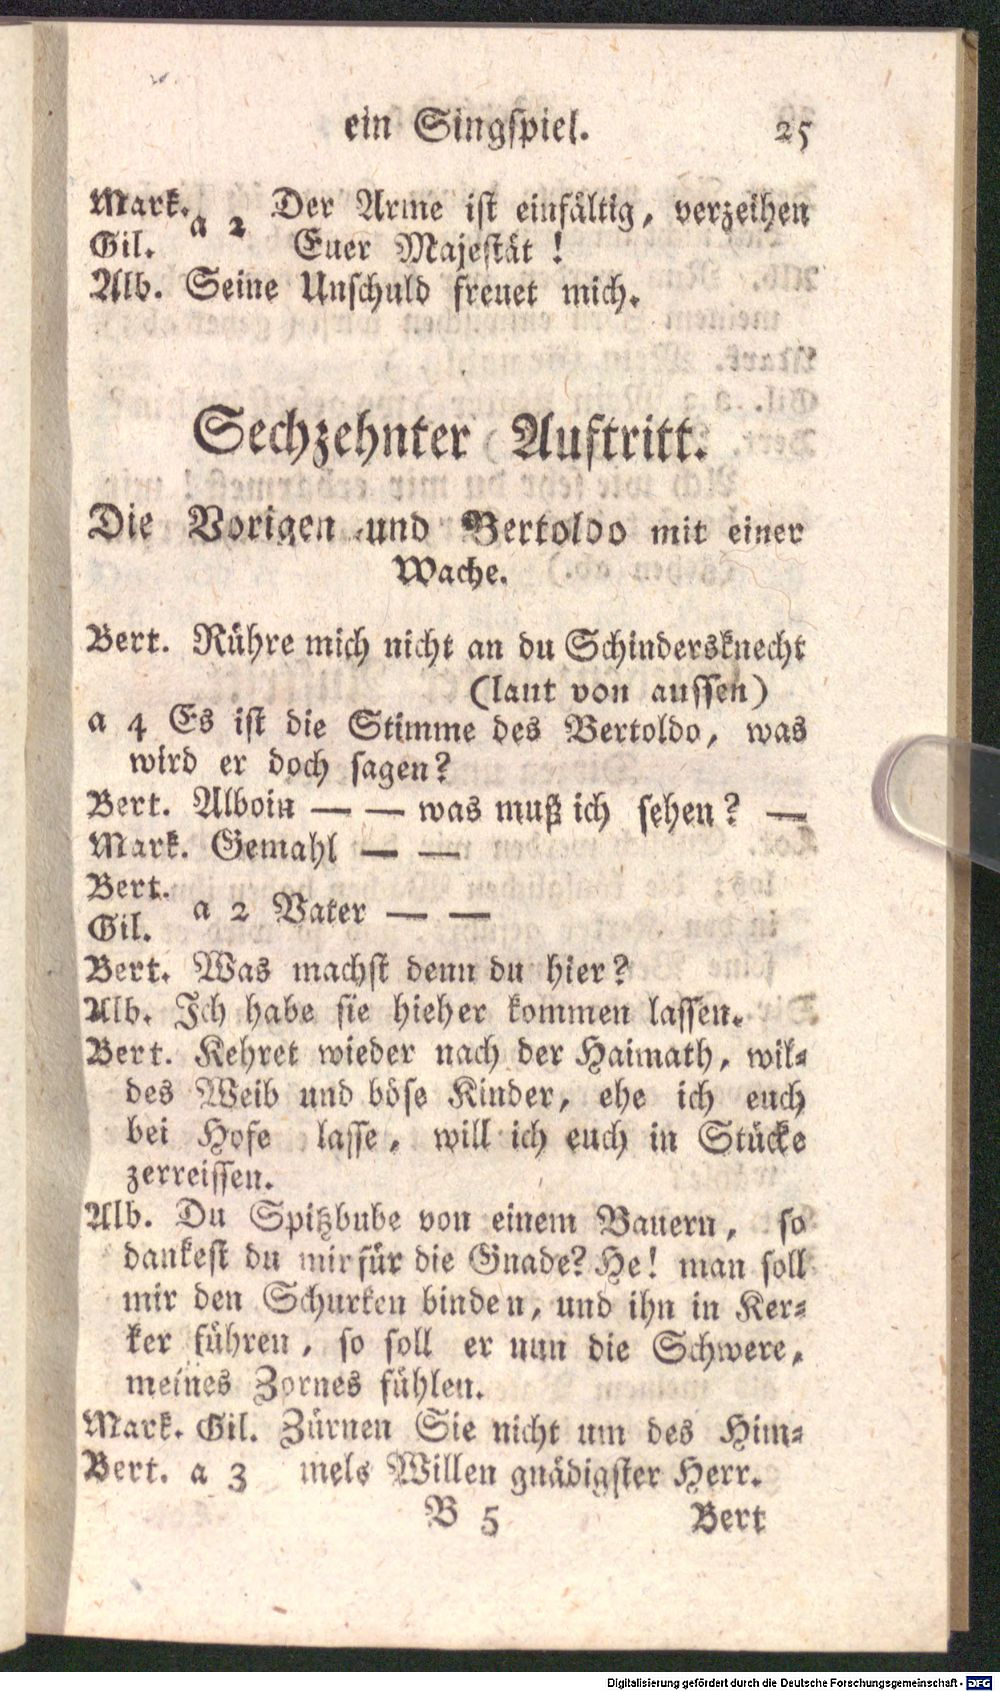 ein Singspiel. 25
Mark. a 2 Der Arme ist einfältig, verzeihen
Gil. Euer Majestät !
Alb. Seine Unschuld freuet mich.
Sechzehnter Auftritt.
Die Vorigen und Bertoldo mit einer
Wache.
Bert. Rühre mich nicht an du Schindersknecht
(laut von aussen)
a 4 Es ist die Stimme des Bertoldo, was
wird er doch sagen?
Bert. Alboin — — was muß ich sehen? —
Mark. Gemahl — —
Bert.
a 2 Vater — —
Gil.
Bert. Was machst denn du hier?
Alb. Ich habe sie hieher kommen lassen.
Bert. Kehret wieder nach der Haimath, wil-
des Weib und böse Kinder, ehe ich euch
bei Hofe lasse, will ich euch in Stücke
zerreissen.
Alb. Du Spitzbube von einem Bauern, so
dankest du mir für die Gnade? He! man soll
mir den Schurken binden, und ihn in Ker-
ker führen, so soll er nun die Schwere,
meines Zornes fühlen.
Mark. Gil. Zürnen Sie nicht um des Him-
Bert. a 3 mels Willen gnädigster Herr.
B 5 Bert
Digitalisierung gefördert durch die Deutsche Forschungsgemeinschaft - DFG